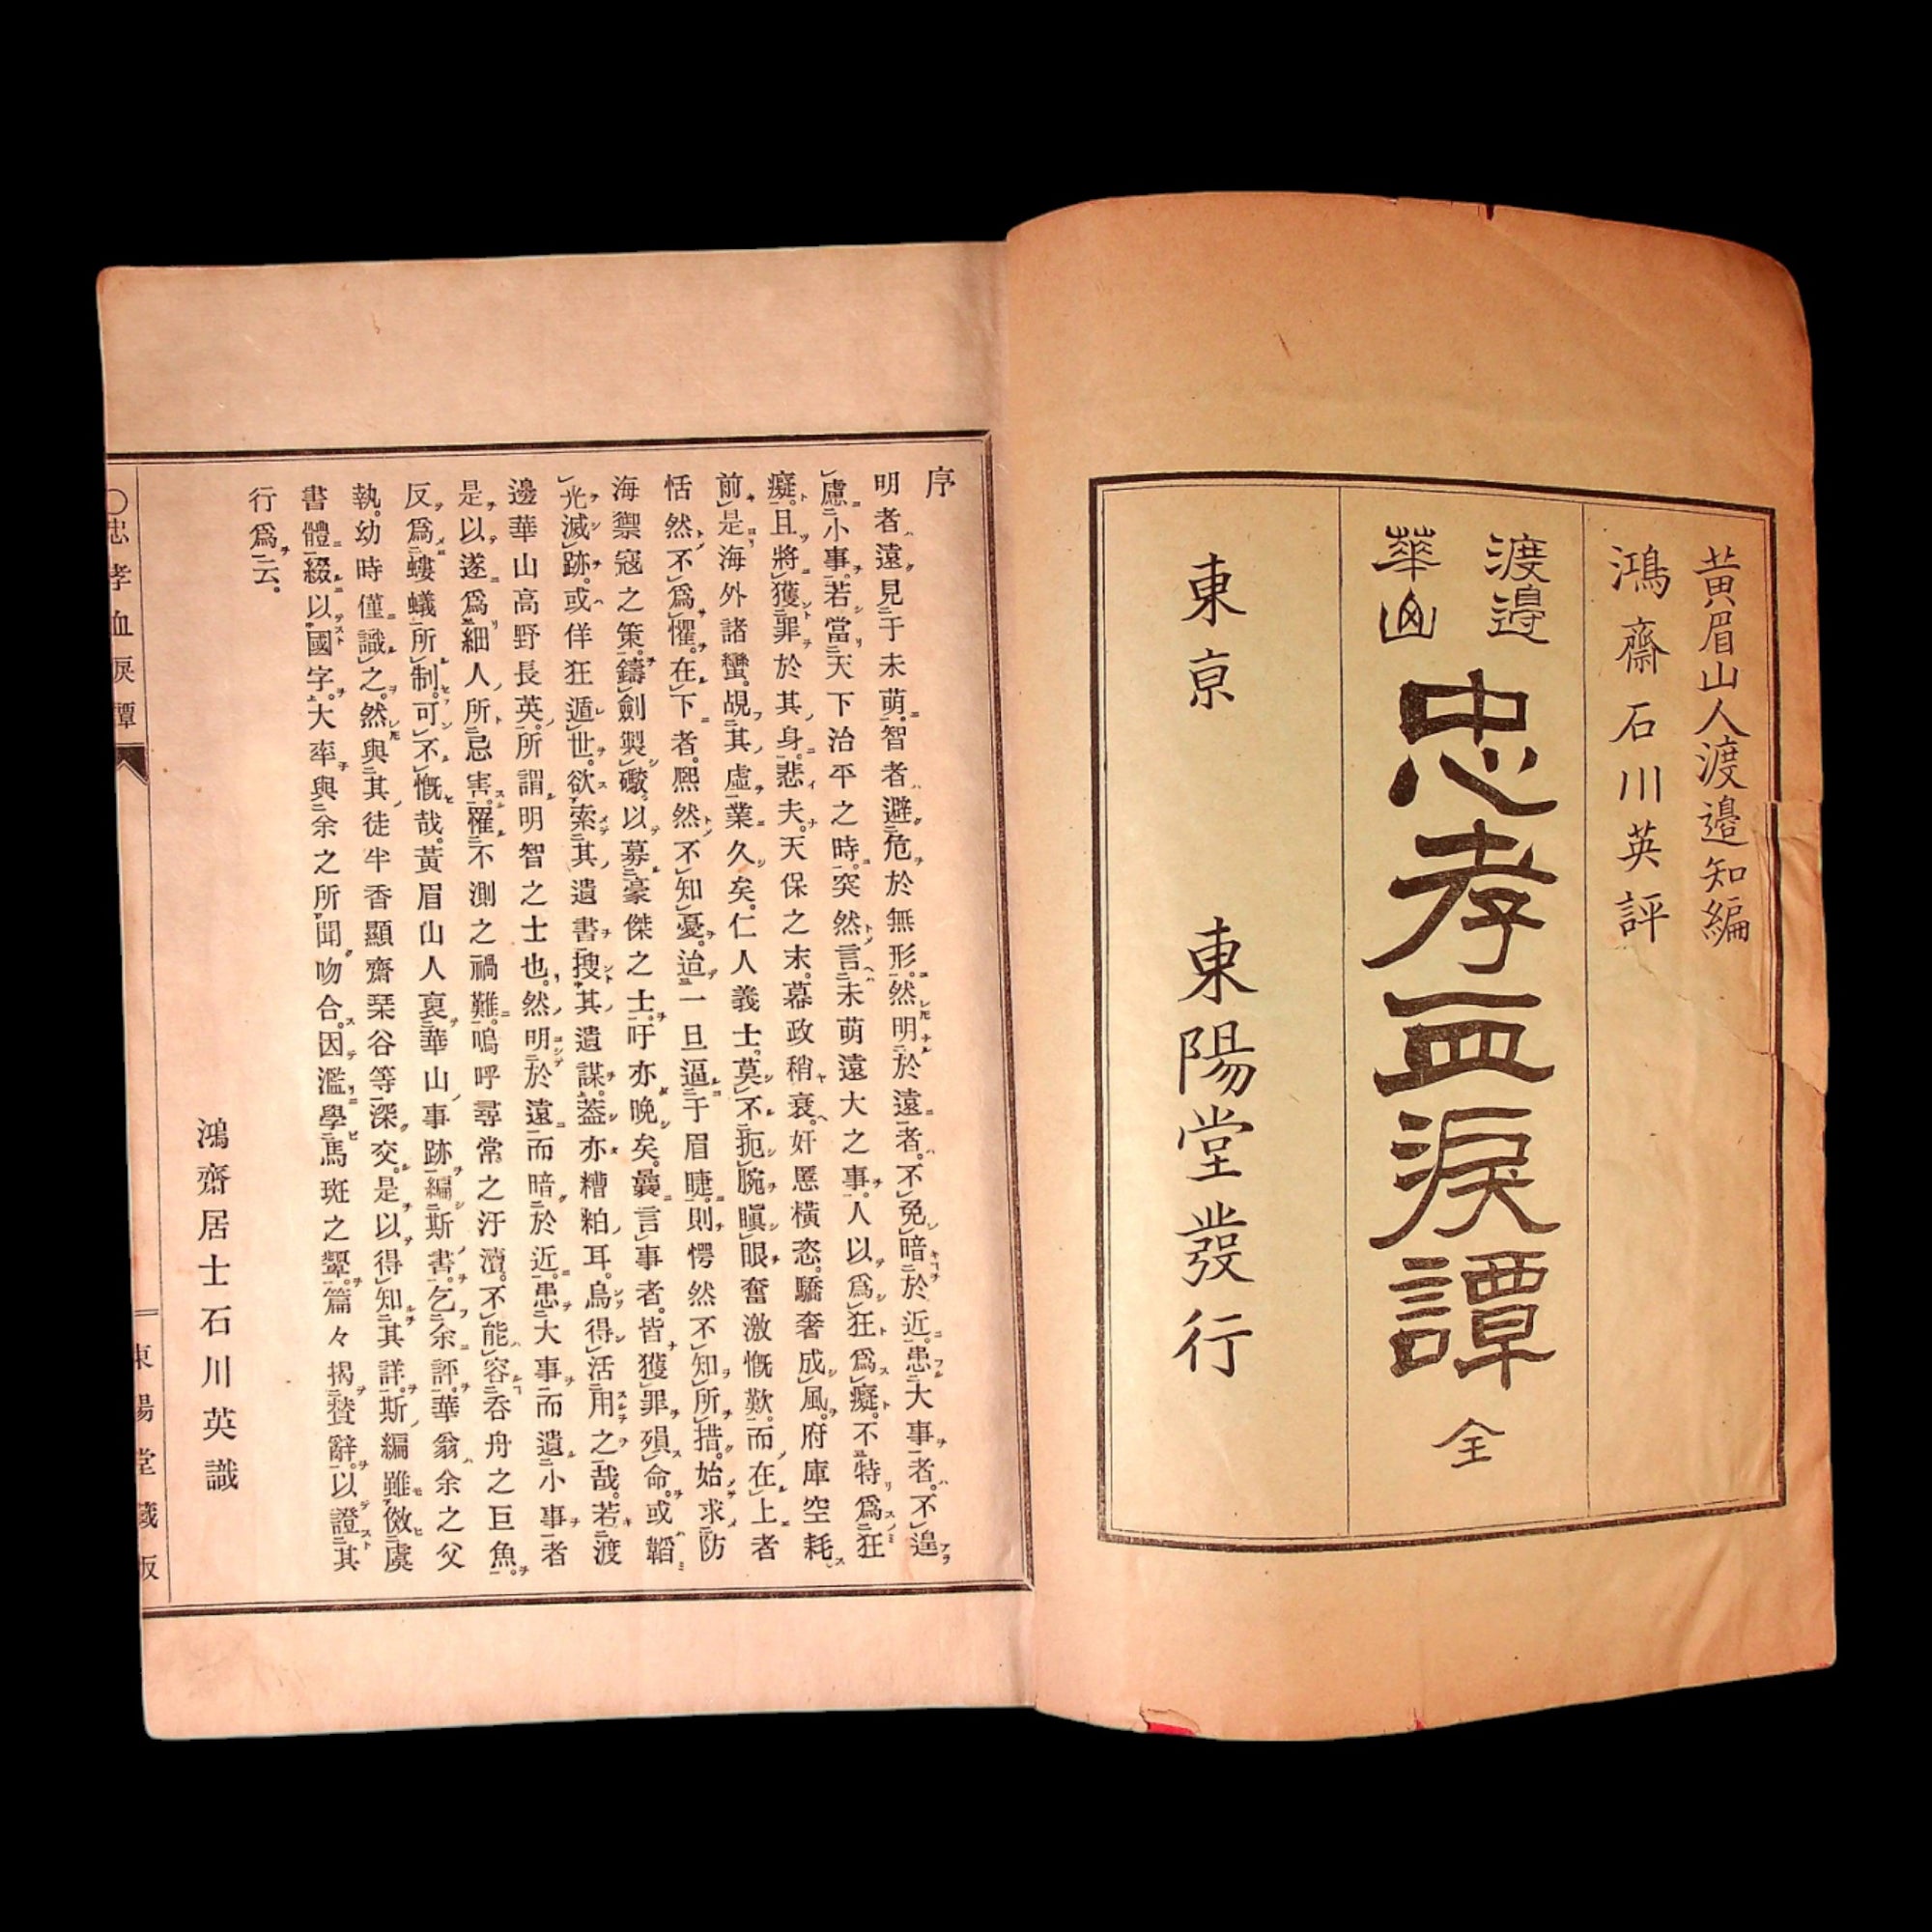 黃眉山人渡邉知編
鴻齋石川英評
渡邉
華山
忠孝血淚譚 全
東京 東陽堂發行
序
明者遠見于未萌。智者避危於無形。然明於遠者。不免暗於近。患大事者。不遑
慮小事。若當天下治平之時。突然言未萌遠大之事。人以爲狂爲癡。不特爲狂
癡。且將獲罪於其身。悲夫。天保之末。幕政稍衰。奸慝橫恣。驕奢成風。府庫空耗。
前是海外諸蠻。覘其虛業久矣。仁人義士。莫不扼腕瞋眼奮激慨歎。而在上者
恬然不爲懼。在下者。熙然不知憂。迨一旦逼于眉睫。則愕然不知所措。始求防
海禦寇之策。鑄劍製礮。以募豪傑之士。吁亦晚矣。曩言事者。皆獲罪殞命。或韜
光滅跡。或佯狂遁世。欲索其遺書。搜其遺謀。蓋亦糟粕耳。烏得活用之哉。若渡
邊華山高野長英。所謂明智之士也。然明於遠而暗於近。患大事而遺小事者
是以遂爲細人所忌害。罹不測之禍難。嗚呼尋常之汙瀆。不能容呑舟之巨魚。
反爲螻蟻所制。可不慨哉。黃眉山人哀華山事跡。編斯書。乞余評。華翁余之父
執。幼時僅識之。然與其徒半香顯齋琹谷等深交。是以得知其詳。斯編雖傚虞
書體綴以國字。大率與余之所聞吻合。因濫學馬斑之顰。篇々揭贊辭。以證其
行爲云。
鴻齋居士石川英識
〇忠孝血淚譚
一
東陽堂藏版